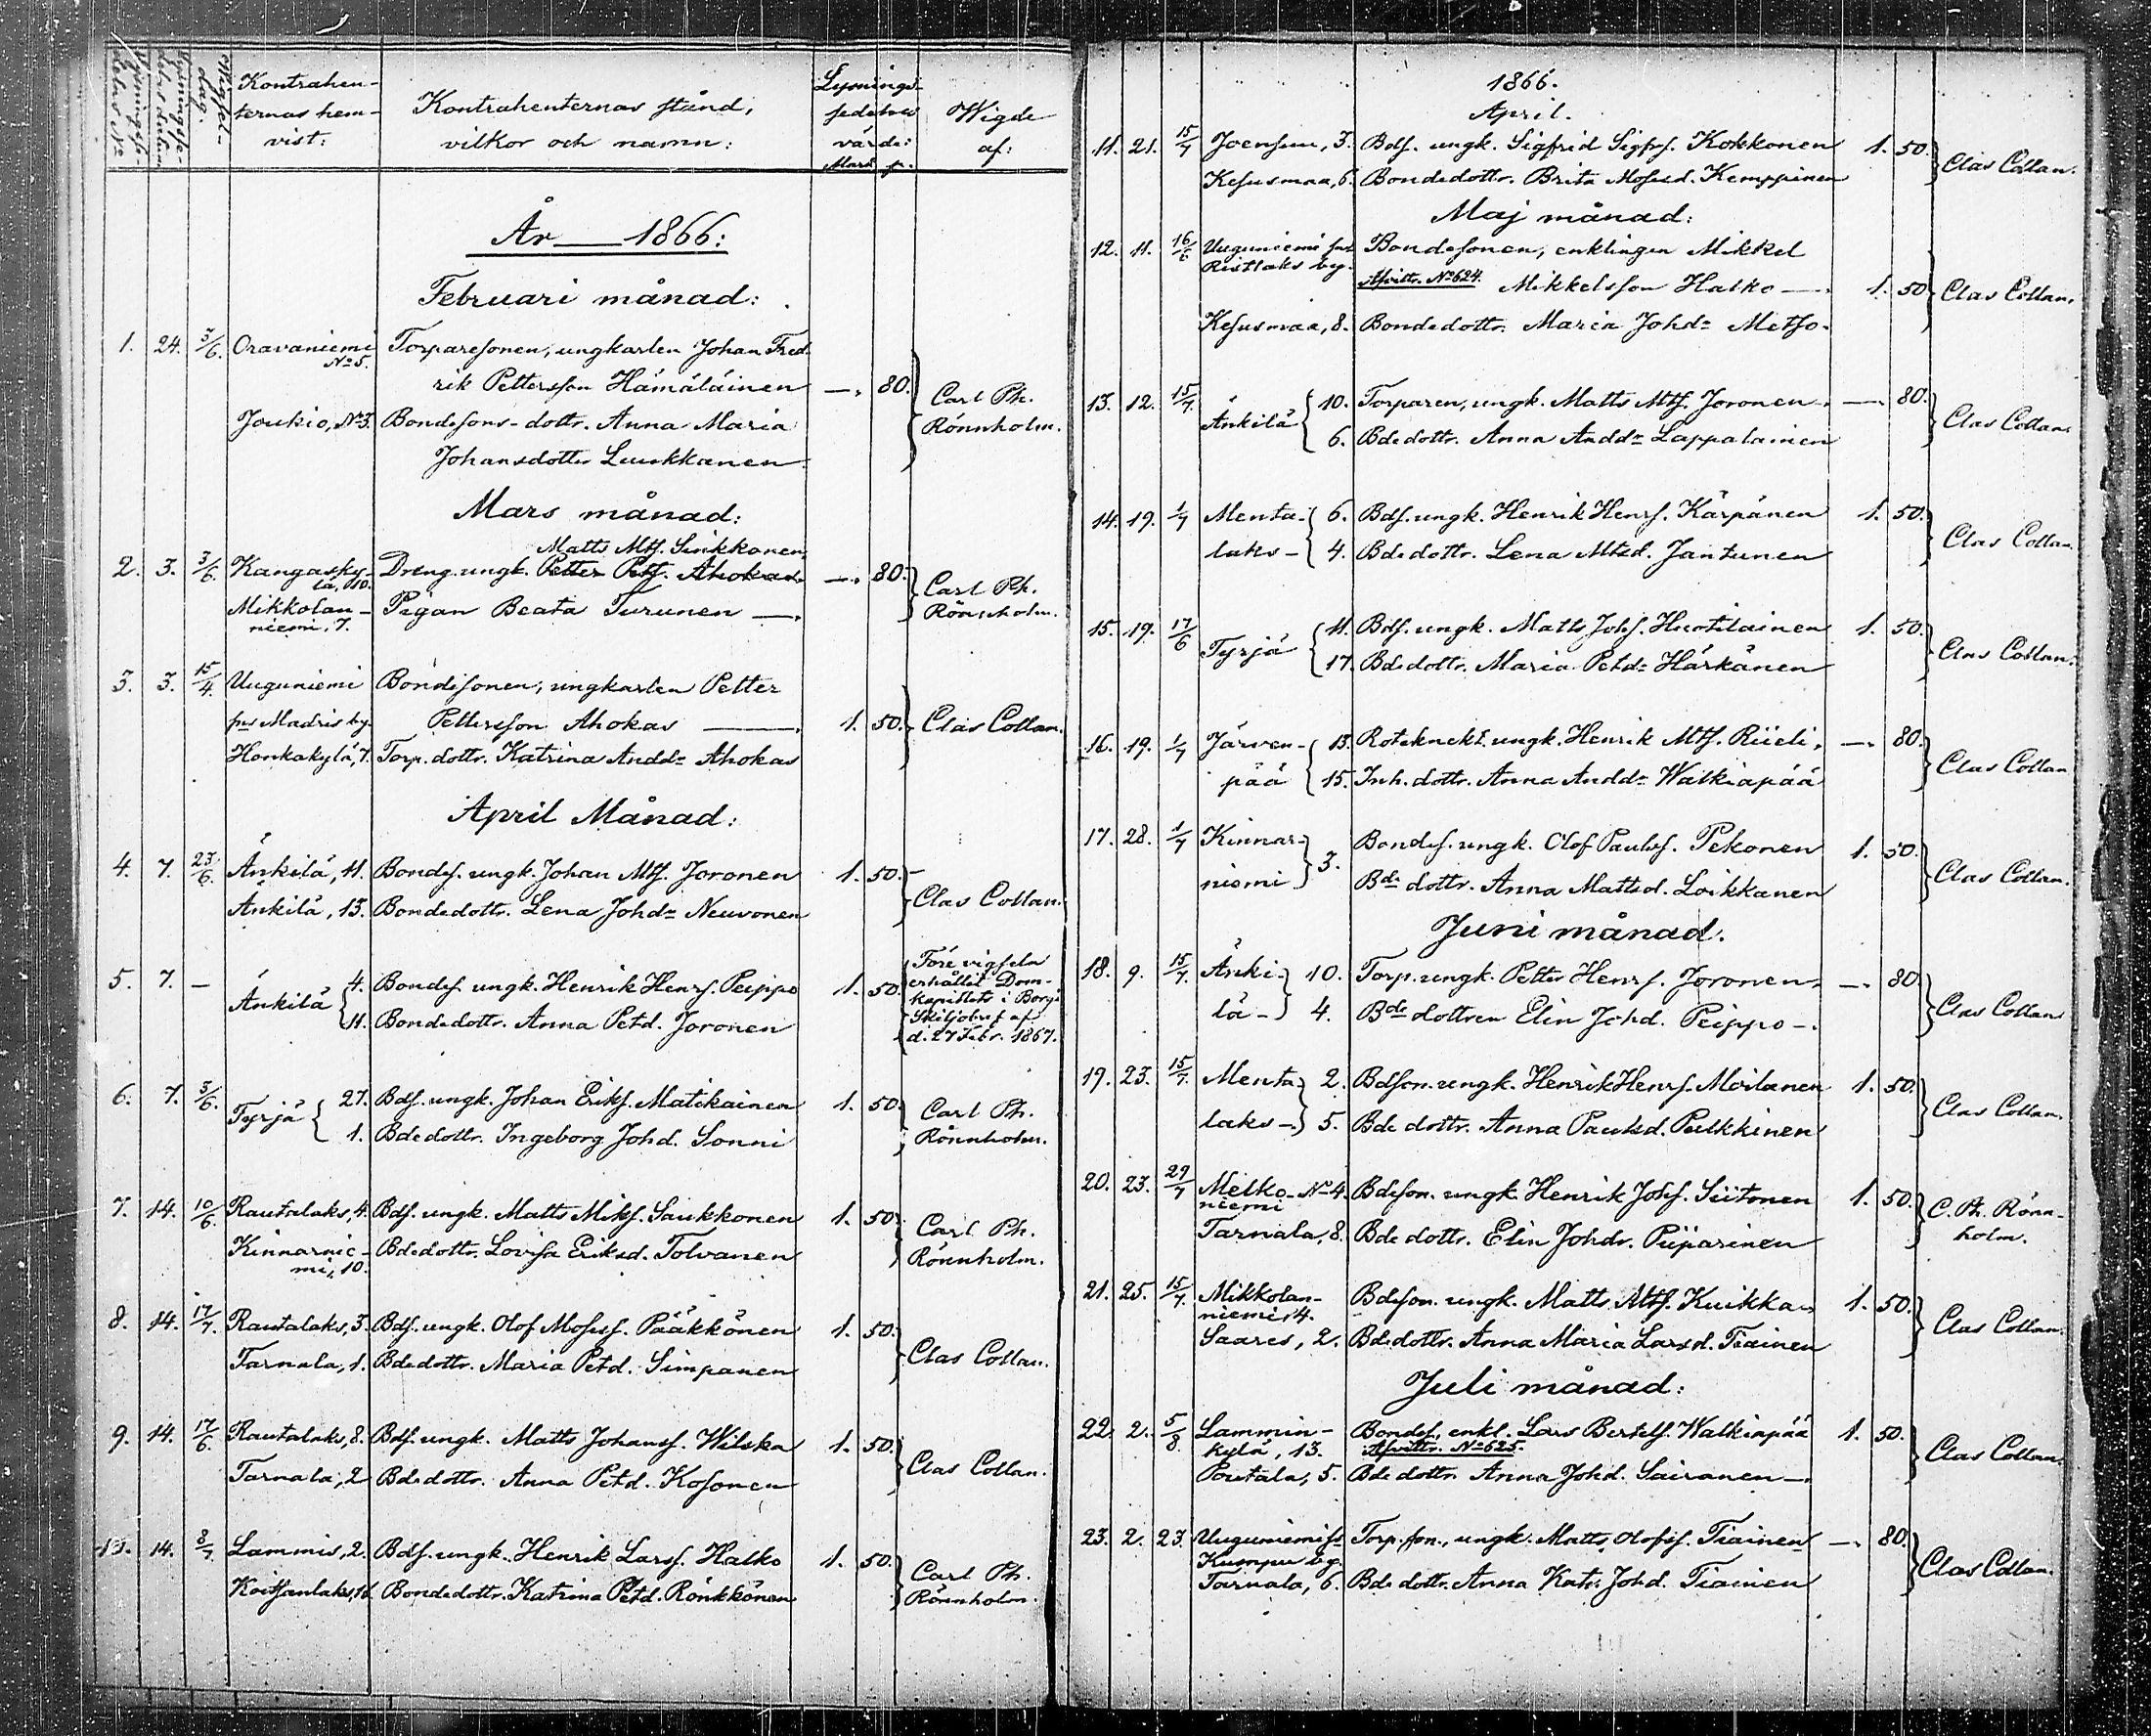 Lysningsse-
delns datum
Vigsel-
dag.
Kontrahen-
ternas hem-
vist:
Kontrahenternas stånd,
vilkor och namn:
Lysnings-
sedelns
värde:
Mark p.
Wigde
af:
År — 1866:
Februari månad:
1. 24. 3/6. Oravaniemi Torparesonen, ungkarlen Johan Fred-
No 5. rik Pettersson Hämäläinen —. 80. Carl Ph.
Joukio, No 3. Bondesons-dottr. Anna Maria Rönnholm.
Johansdotter Luukkanen
Mars månad:
Matts Mts. Sinkkonen
2. 3. 3/6. Kangasky- Dreng. ungk. Petter Pets. Ahokas —. 80. Carl Ph.
lä, 10.
Mikkolan- Pigan Beata Turunen —. Rönnholm.
niemi, 7.
3. 3. 15/4. Uuguniemi Bondesonen, ungkarlen Petter
sn Madris by. Pettersson Ahokas —. 1. 50. Clas Collan.
Honkakylä, 7. Torp. dottr. Katrina Andd:r Ahokas
April Månad:
4. 7. 23/6. Änkilä, 11. Bondes. ungk. Johan Mts. Joronen 1. 50. Clas Collan.
Änkilä, 13. Bondedottr. Lena Johd:r Neuvonen
5. 7. — Änkilä 4. Bondes. ungk. Henrik Henrs. Peippo 1. 50. Före vigseln
erhållit Dom-
kapitlets i Borgå
11. Bondedottr. Anna Petd. Joronen Skiljobref af
d. 27 Febr. 1867.
6. 7. 3/6. Tyrjä 27. Bds. ungk. Johan Eriks. Matikainen 1. 50. Carl Ph.
1. Bdedottr. Ingeborg Johd. Sonni Rönnholm.
7. 14. 10/6. Rautalaks, 4. Bds. ungk. Matts Miks. Saukkonen 1. 50. Carl Ph.
Kinnarnie- Bdedottr. Lovisa Eriksd. Tolvanen Rönnholm.
mi, 10.
8. 14. 17/7. Rautalaks, 3. Bds. ungk. Olof Moses. Pääkkönen 1. 50. Clas Collan.
Tarnala, 1. Bdedottr. Maria Petd. Simpanen
9. 14. 17/6. Rautalaks, 8. Bds. ungk. Matts Johans. Wilska 1. 50. Clas Collan.
Tarnala, 2. Bdedottr. Anna Petd. Kosonen
10. 14. 8/7. Lammis, 2. Bds. ungk. Henrik Larss. Halko 1. 50. Carl Ph.
Koitsanlaks, 16. Bondedottr. Katrina Petd. Rönkkönen Rönnholm.
1866.
April.
11. 21. 15/7 Joensuu, 3. Bds. ungk. Sigfrid Sigfrs. Kokkonen 1. 50. Clas Collan.
Kesusmaa, 6. Bondedottr. Brita Mosesd. Kemppinen
Maj månad:
12. 11. 16/6 Uuguniemi sn Bondesonen, enklingen Mikkel
Ristlaks by.
Afvittr. No 624. Mikkelsson Halko —. 1. 50. Clas Collan.
Kesusmaa, 8. Bondedottr. Maria Johd:r Metso.
13. 12. 15/7. Änkilä 10. Torparen, ungk. Matts Mts. Joronen. —. 80. Clas Collan.
6. Bdedottr. Anna Andd:r Lappalainen
14. 19. 1/7 Menta- 6. Bds. ungk. Henrik Henrs. Kärpänen 1. 50. Clas Collan.
laks- 4. Bdedottr. Lena Mtsd. Jantunen
15. 19. 17/6 Tyrjä 11. Bds. ungk. Matts Johs. Huotilainen 1. 50. Clas Collan.
17. Bdedottr. Maria Petd:r Härkänen
16. 19. 1/7 Järven- 13. Roteknekt. ungk. Henrik Mts. Riieli. —. 80. Clas Collan
pää 15. Inh. dottr. Anna Andd:r Walkiapää
17. 28. 1/7 Kinnar- 3. Bondes. ungk. Olof Paulss. Pekonen 1. 50. Clas Collan.
niemi Bde dottr. Anna Mattsd. Loikkanen
Juni månad.
18. 9. 15/7. Änki- 10. Torp. ungk. Petter Henrs. Joronen. —. 80. Clas Collan
lä- 4. Bde dottren Elin Johd. Peippo-.
19. 23. 15/7. Menta- 2. Bdson. ungk. Henrik Henrs. Moilanen 1. 50. Clas Collan.
laks-. 5. Bde dottr. Anna Paulsd. Pulkkinen
20. 23. 29/7 Melko- No 4. Bdeson. ungk. Henrik Johs. Siitonen 1. 50. C. Ph. Rönn-
niemi
Tarnala, 8. Bde dottr. Elin Johdr. Piiparinen holm.
21. 25. 15/7. Mikkolan- Bdeson. ungk. Matts Mts. Kuikka 1. 50. Clas Collan.
niemi, 4.
Saares, 2. Bdedottr. Anna Maria Larsd. Tiainen
Juli månad:
22. 2. 5/8. Lammin- Bondes. enkl. Lars Bertels. Walkiapää 1. 50. Clas Collan.
kylä, 13. Afvittr. No 625.
Poutala, 5. Bde dottr. Anna Johd. Sairanen-.
23. 2. 23. Uuguniemi sn Torp. son., ungk. Matts Olofss. Tiainen —. 80. Clas Collan.
Kumpu by.
Tarnala, 6. Bde dottr. Anna Katr. Johd. Tiainen